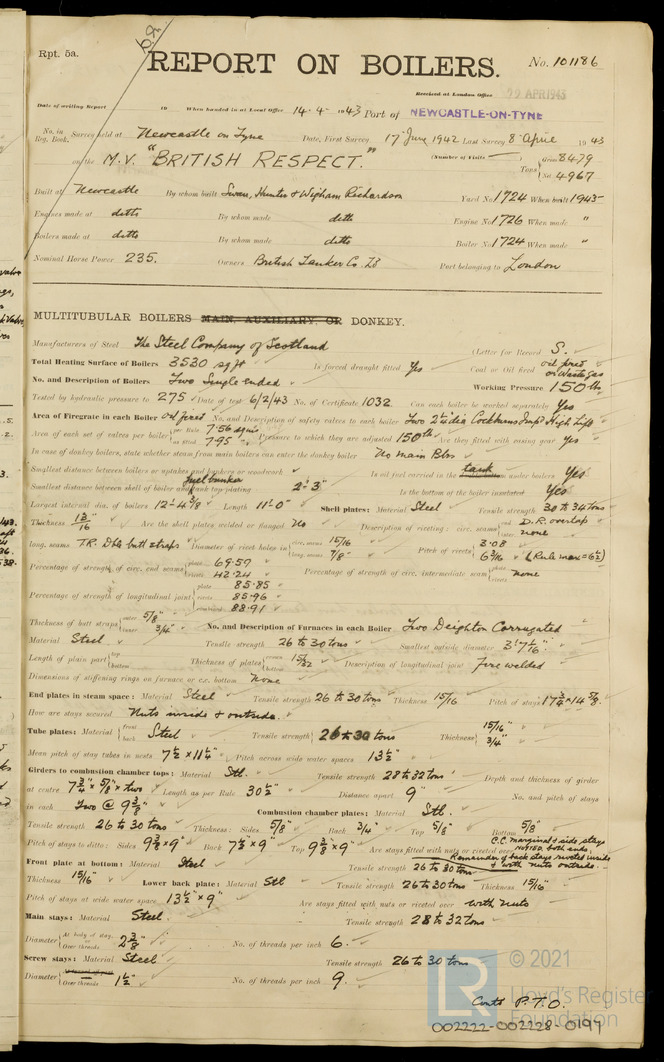 Rpt. 5a.
REPORT ON BOILERS.
No. 101186
Received at London Office 22 APR 1943
Date of writing Report 19 When handed in at Local Office 14-4-1943 Port of NEWCASTLE-ON-TYNE
No. in Reg. Book. Survey held at Newcastle on Tyne Date, First Survey 17 June 1942 Last Survey 8 April 1943
on the M.V. "BRITISH RESPECT." (Number of Visits ) Tons Gross 8479 Net 4967
Built at Newcastle By whom built Swan, Hunter & Wigham Richardson Yard No. 1724 When built 1943
Engines made at ditto By whom made ditto Engine No. 1726 When made "
Boilers made at ditto By whom made ditto Boiler No. 1724 When made "
Nominal Horse Power 235. Owners British Tanker Co. Ld Port belonging to London
MULTITUBULAR BOILERS MAIN, AUXILIARY, OR DONKEY.
Manufacturers of Steel The Steel Company of Scotland (Letter for Record S.
Total Heating Surface of Boilers 3530 sq ft Is forced draught fitted Yes Coal or Oil fired oil fired or Waste Gas
No. and Description of Boilers Two Single ended Working Pressure 150 lb
Tested by hydraulic pressure to 275 Date of test 6/2/43 No. of Certificate 1032 Can each boiler be worked separately Yes
Area of Firegrate in each Boiler oil fired No. and Description of safety valves to each boiler Two 2 1/4" dia Cockburns Impd High Lift
Area of each set of valves per boiler per Rule 7.56 sq ins as fitted 7.95 Pressure to which they are adjusted 150 lb Are they fitted with easing gear Yes
In case of donkey boilers, state whether steam from main boilers can enter the donkey boiler No main Blrs
Smallest distance between boilers or uptakes and bunkers or woodwork Is oil fuel carried in the tank under boilers Yes
Smallest distance between shell of boiler and fuel bunker tank top plating 2'-3" Is the bottom of the boiler insulated Yes
Largest internal dia. of boilers 12'-4 3/8" Length 11'-0" Shell plates: Material Steel Tensile strength 30 to 34 tons
Thickness 13/16 Are the shell plates welded or flanged No Description of riveting: circ. seams end D.R. overlap none
long. seams T.R. Dble butt straps Diameter of rivet holes in circ. seams 15/16 long. seams 7/8" Pitch of rivets 3.08 6 3/16 (Rule max = 6 1/2)
Percentage of strength of circ. end seams plate 69.57 rivets 42.24 Percentage of strength of circ. intermediate seam plate rivets none
Percentage of strength of longitudinal joint plate 85.85 rivets 85.96 combined 88.91
Thickness of butt straps outer 5/8" inner 3/4" No. and Description of Furnaces in each Boiler Two Deighton Corrugated
Material Steel Tensile strength 26 to 30 tons Smallest outside diameter 3'-7 1/16"
Length of plain part top bottom Thickness of plates crown bottom 15/32 Description of longitudinal joint fire welded
Dimensions of stiffening rings on furnace or c.c. bottom None
End plates in steam space: Material Steel Tensile strength 26 to 30 tons Thickness 15/16 Pitch of stays 17 3/4 x 14 5/8
How are stays secured Nuts inside & outside.
Tube plates: Material front back Steel Tensile strength 26 to 30 tons Thickness 15/16" 3/4"
Mean pitch of stay tubes in nests 7 1/2 x 11 1/4" Pitch across wide water spaces 13 1/2"
Girders to combustion chamber tops: Material Stl. Tensile strength 28 to 32 tons Depth and thickness of girder
at centre 7 3/4" x 5/8" x two Length as per Rule 30 1/2" Distance apart 9" No. and pitch of stays
in each Two @ 9 3/8" Combustion chamber plates: Material Stl.
Tensile strength 26 to 30 tons Thickness: Sides 5/8" Back 3/4" Top 5/8" Bottom 5/8"
Pitch of stays to ditto: Sides 9 3/8 x 9" Back 7 1/2" x 9" Top 9 3/8" x 9" Are stays fitted with nuts or riveted over C.C. marginal & side stays nutted both ends. Remainder of back stays riveted inside & with nuts outside.
Front plate at bottom: Material Steel Tensile strength 26 to 30 tons
Thickness 15/16" Lower back plate: Material Stl Tensile strength 26 to 30 tons Thickness 15/16"
Pitch of stays at wide water space 13 1/2" x 9" Are stays fitted with nuts or riveted over with nuts
Main stays: Material Steel Tensile strength 28 to 32 tons
Diameter At body of stay, or Over threads 2 3/8" No. of threads per inch 6.
Screw stays: Material Steel Tensile strength 26 to 30 tons
Diameter Over threads 1 1/2" No. of threads per inch 9.
Contd P.T.O.
LR © 2021 Lloyd's Register Foundation
002222-002228-0197